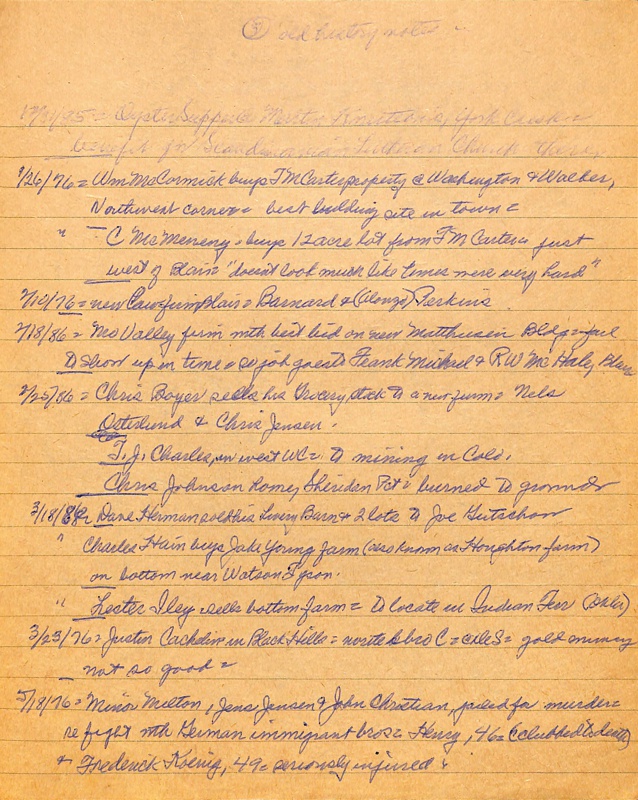 ③ old history notes
12/31/95 = Oyster Supper @ Martin York Creek =
benefit for Scandinavian Lutheran Church there,
1/26/76 = Wm McCormick buys F M Carter property @ Washington & Walker,
Northwest corner = best building site in town =
" - C McMeneny = buys 12 acre lot from F M Carter = just
west of Blair = "doesn't look much like times were very hard"
2/10/76 = new Law firm Blair = Barnard & (Alonzo) Perkins
2/18/86 = Mo Valley firm with best bid on new Matthiesen Bldg = fail
to show up in time = so job goes to Frank Michael & R W McHale, Blair
2/25/86 = Chris Boyer sells his Grocery stock to a new firm = Nels
Osterlund & Chris Jensen.
T. J. Charles, in west WC = to mining in Colo.
Chris Johnson home, Sheridan Pct = burned to ground
3/18/86 Dave Herman sold his Livery Barn & 2 lots to Joe Gutschow
" Charles Hain buys Jake Young farm (also known as Houghton farm)
on bottom near Watson Tyson.
" Lester Iley sells bottom farm = to locate in Indian Terr (Okla)
3/23/76 = Justin in Black Hills = wrote to bro C = = gold mining
not so good =
5/18/76 = Minor Milton, Jens Jensen & John Christian, jailed for murder =
re fight with German immigrant bros = Henry, 46 = (clubbed to death)
& Frederick Koenig, 49 = seriously injured.